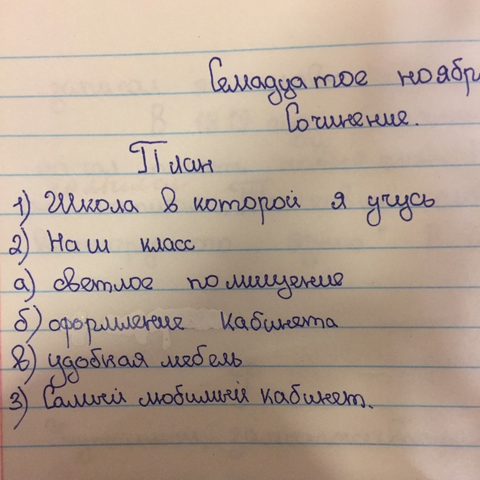 Семадцатое ноябр
Сочинение.
План
1) Школа в которой я учусь
2) Наш класс
а) светлое помищение
б) оформление кабинета
в) удобная мебель
3) Самый любимый кабинет.